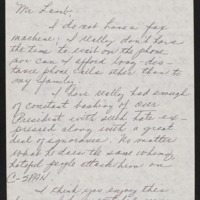 Mr Lamb:
I do not have a fax
machine; I really don't have
the time to wait on the phone
nor can I afford long dis-
tance phone calls other than to
my family.
I have really had enough
of constant bashing of our
President with such hate ex-
pressed along with a great
deal of ignorance. No matter
what he does the same whiney,
hateful people attack him on
C-SPAN.
I think you enjoy this